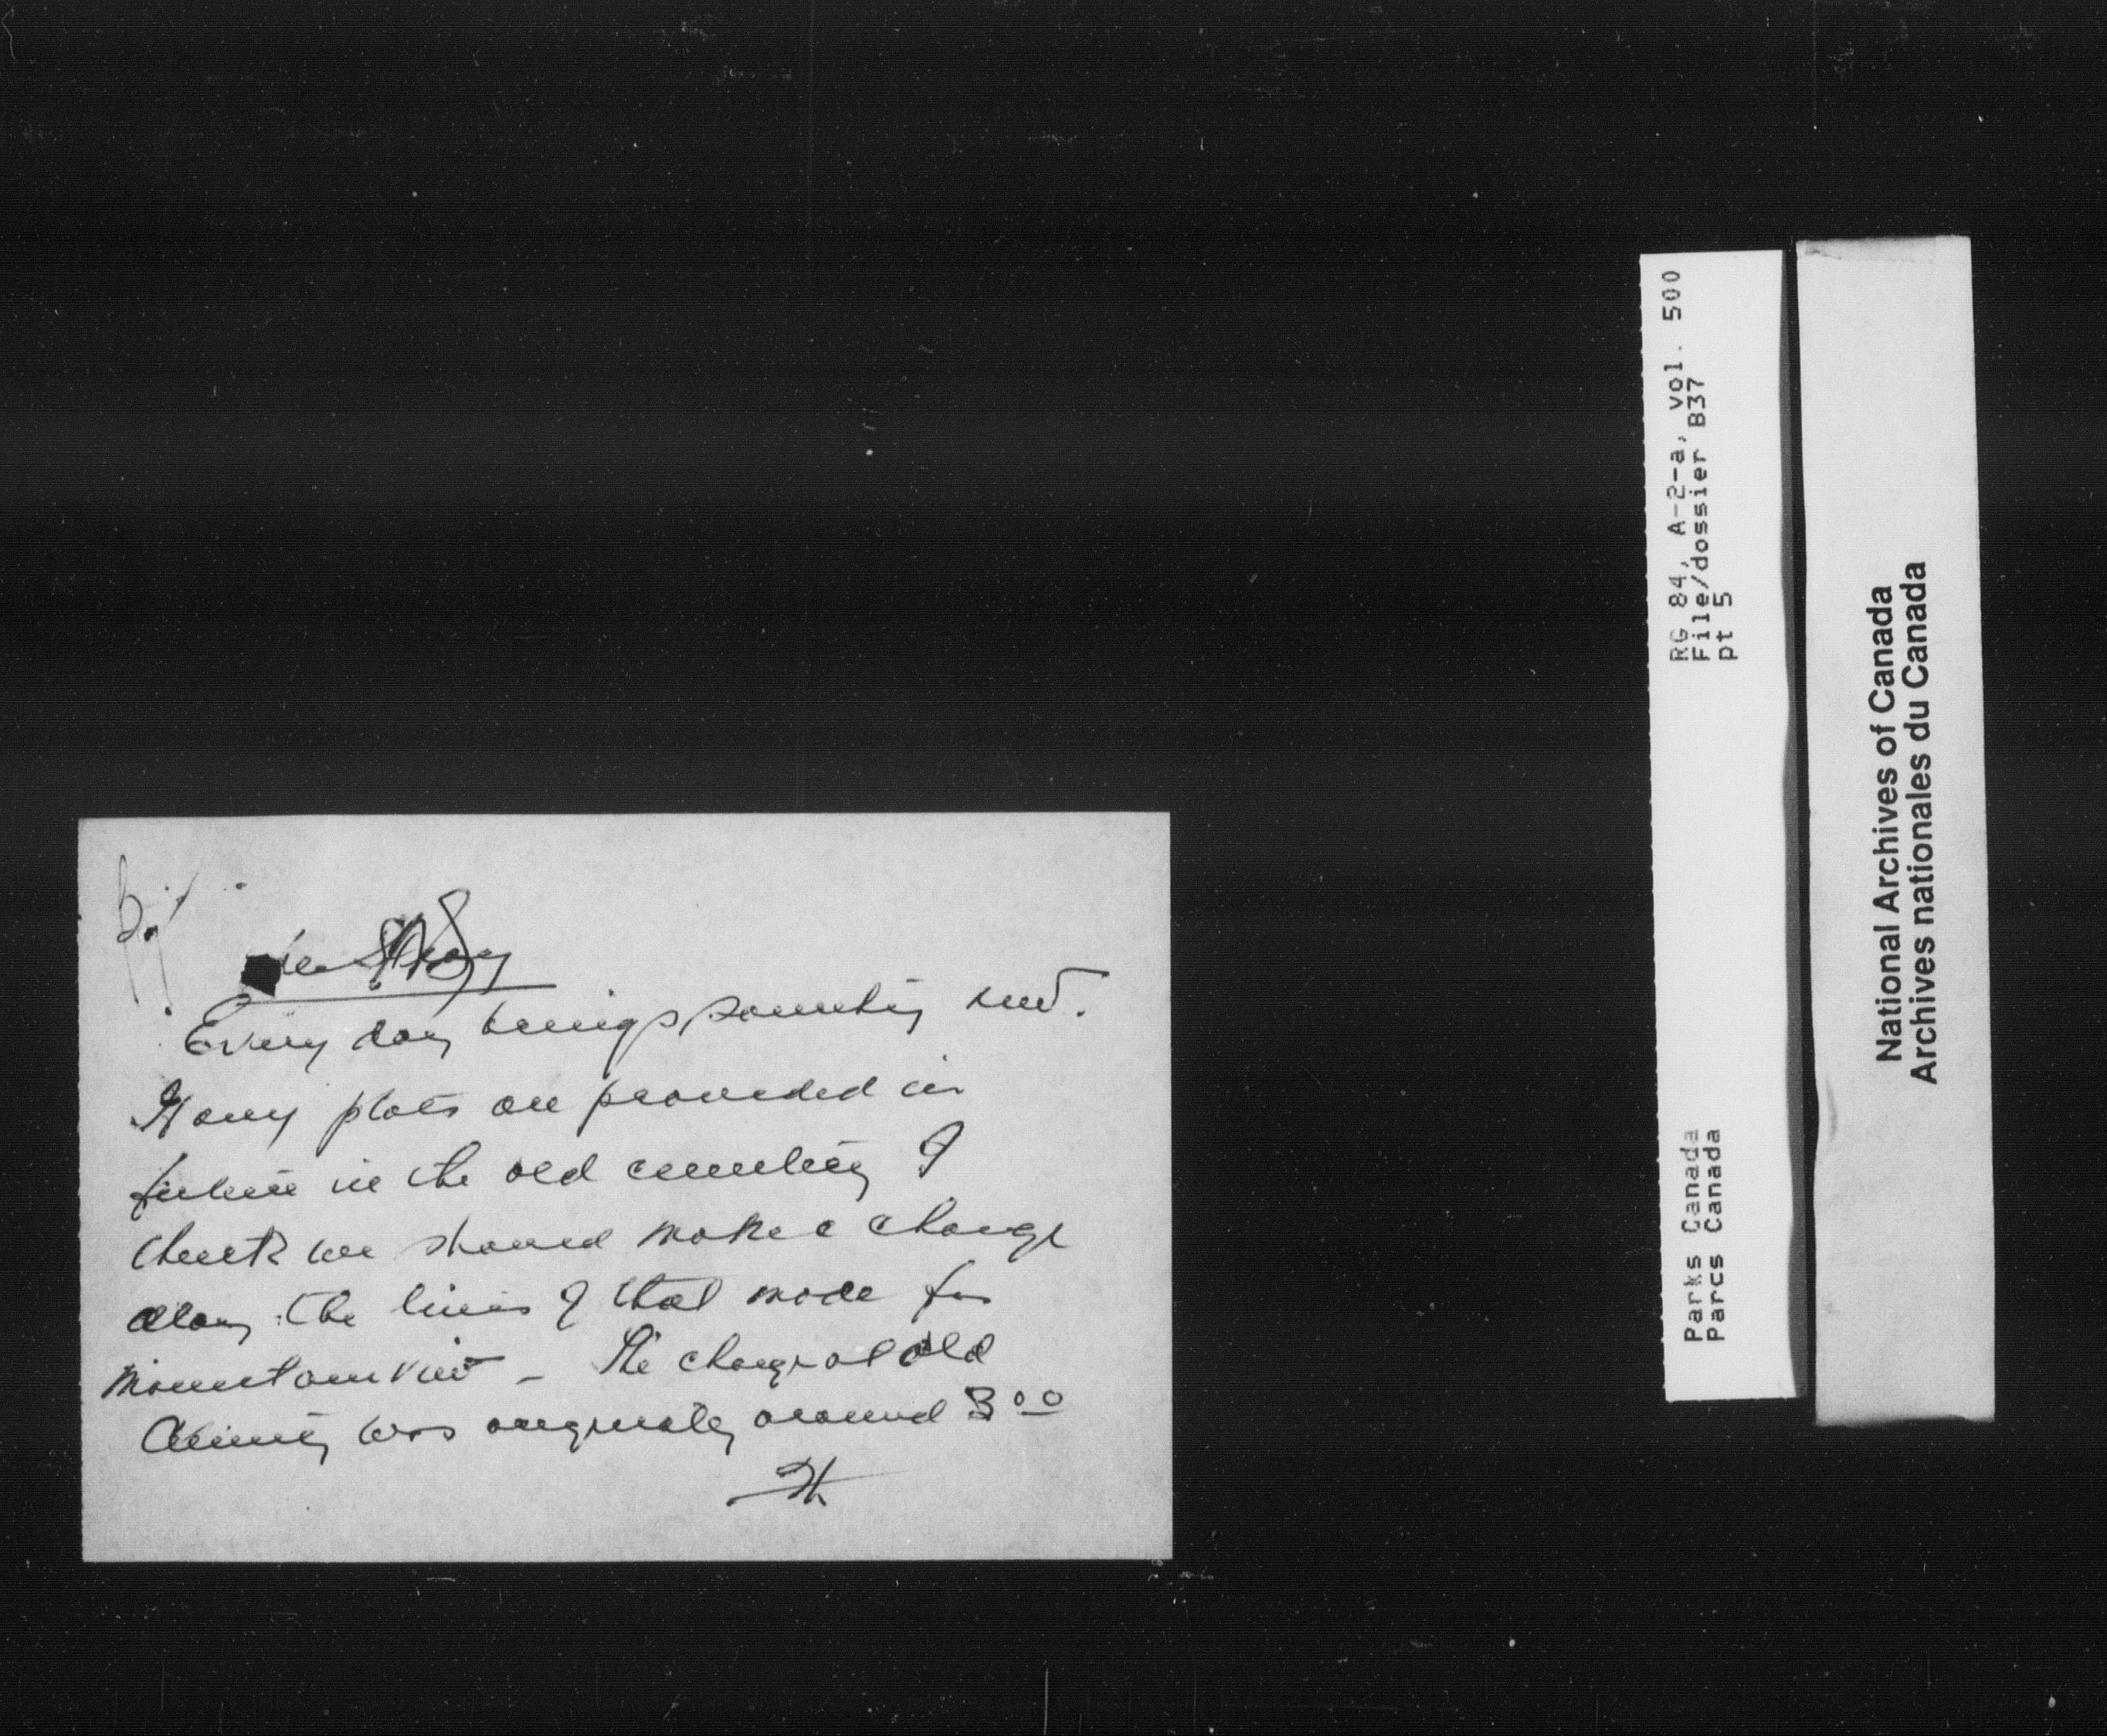 Every day brings something new.
If any plots are provided in
future in the old cemetery I
think we should make a charge
along the lines of that made for
Mountainview - The charge at old
Cemetery was originally around 3.00
RG 84, A-2-a, vol. 500
File/dossier B37
pt 5
Parks Canada
Parcs Canada
National Archives of Canada
Archives nationales du Canada